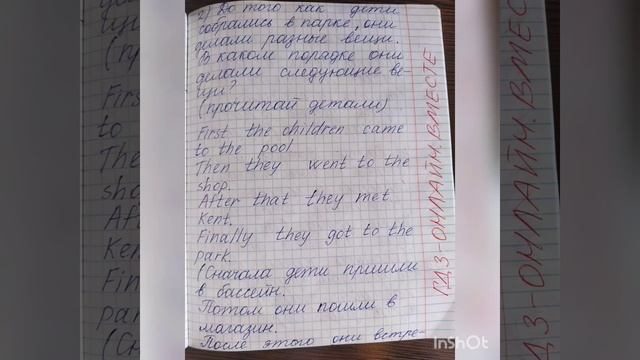 2) До того как дети
собрались в парке, они
делали разные вещи.
В каком порядке они
делали следующие ве-
щи?
(прочитай детали)
First the children came
to the pool
Then they went to the
shop.
After that they met
Kent.
Finally they got to the
park.
(Сначала дети пришли
в бассейн.
Потом они пошли в
магазин.
После этого они встре-
ГДЗ-ОНЛАЙН.ВМЕСТЕ
InShOt